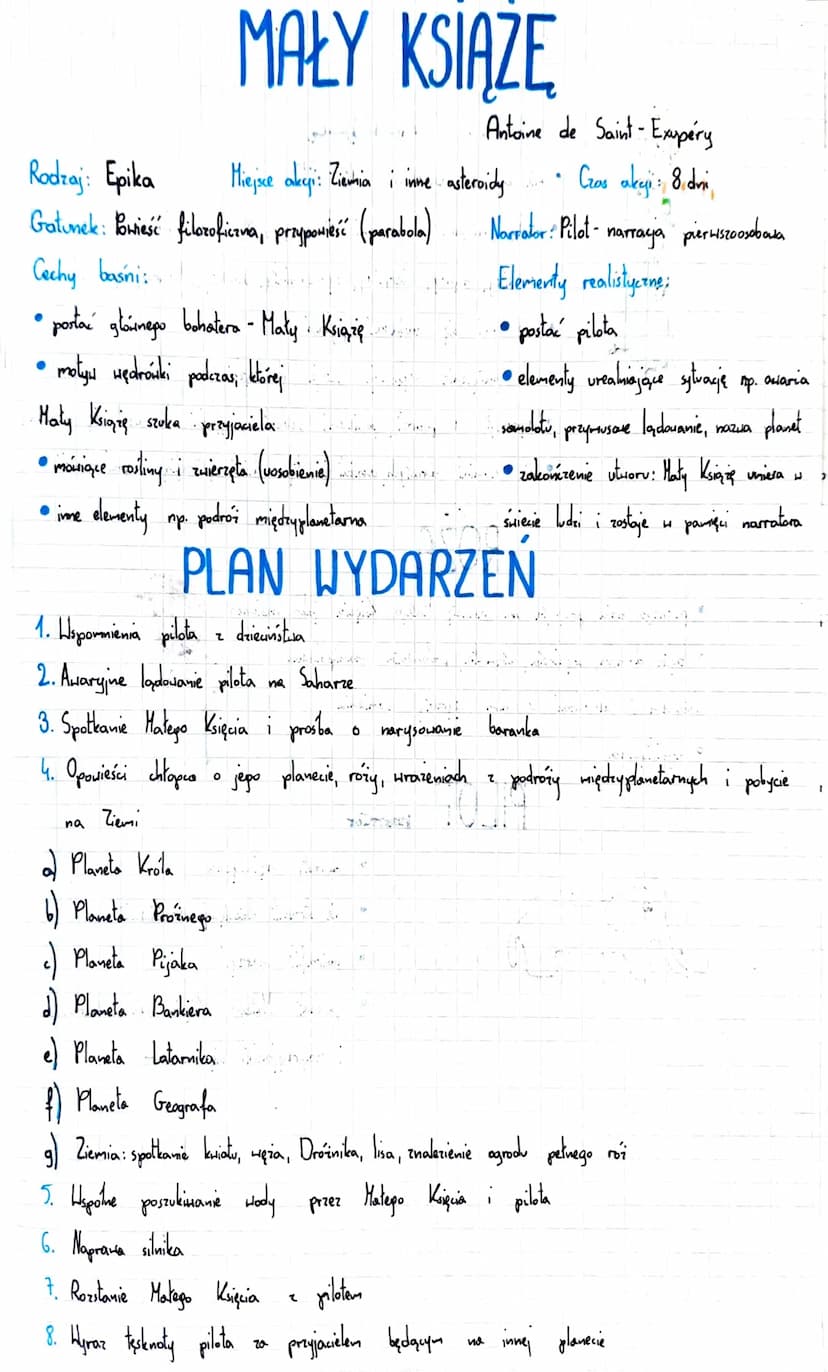 MAŁY KSIĄŻĘ
Antoine de Saint-Exupéry
Rodzaj: Epika Miejsce akcji: Ziemia i inne asteroidy • Czas akcji: 8 dni
Gatunek: Powieść filozoficzna, przypowieść (parabola) Narrator: Pilot - narracja pierwszoosobowa
Cechy baśni:
• postać głównego bohatera - Mały Książę
• motyw wędrówki podczas, której
Mały Książę szuka przyjaciela
• mówiące rośliny i zwierzęta (uosobienie)
• inne elementy np. podróż międzyplanetarna
Elementy realistyczne:
• postać pilota
• elementy urealniające sytuację np. awaria
samolotu, przymusowe lądowanie, nazwa planet
• zakończenie utworu: Mały Książę umiera w
świecie ludzi i zostaje w pamięci narratora
PLAN WYDARZEŃ
1. Wspomnienia pilota z dzieciństwa
2. Awaryjne lądowanie pilota na Saharze
3. Spotkanie Małego Księcia i prośba o narysowanie baranka
4. Opowieści chłopca o jego planecie, róży, wrażeniach z podróży międzyplanetarnych i pobycie
na Ziemi
a) Planeta Króla
b) Planeta Próżnego
c) Planeta Pijaka
d) Planeta Bankiera
e) Planeta Latarnika
f) Planeta Geografa
g) Ziemia: spotkanie kwiatu, węża, Dróżnika, lisa, znalezienie ogrodu pełnego róż
5. Wspólne poszukiwanie wody przez Małego Księcia i pilota
6. Naprawa silnika
7. Rozstanie Małego Księcia z pilotem
8. Wyraz tęsknoty pilota za przyjacielem będącym na innej planecie